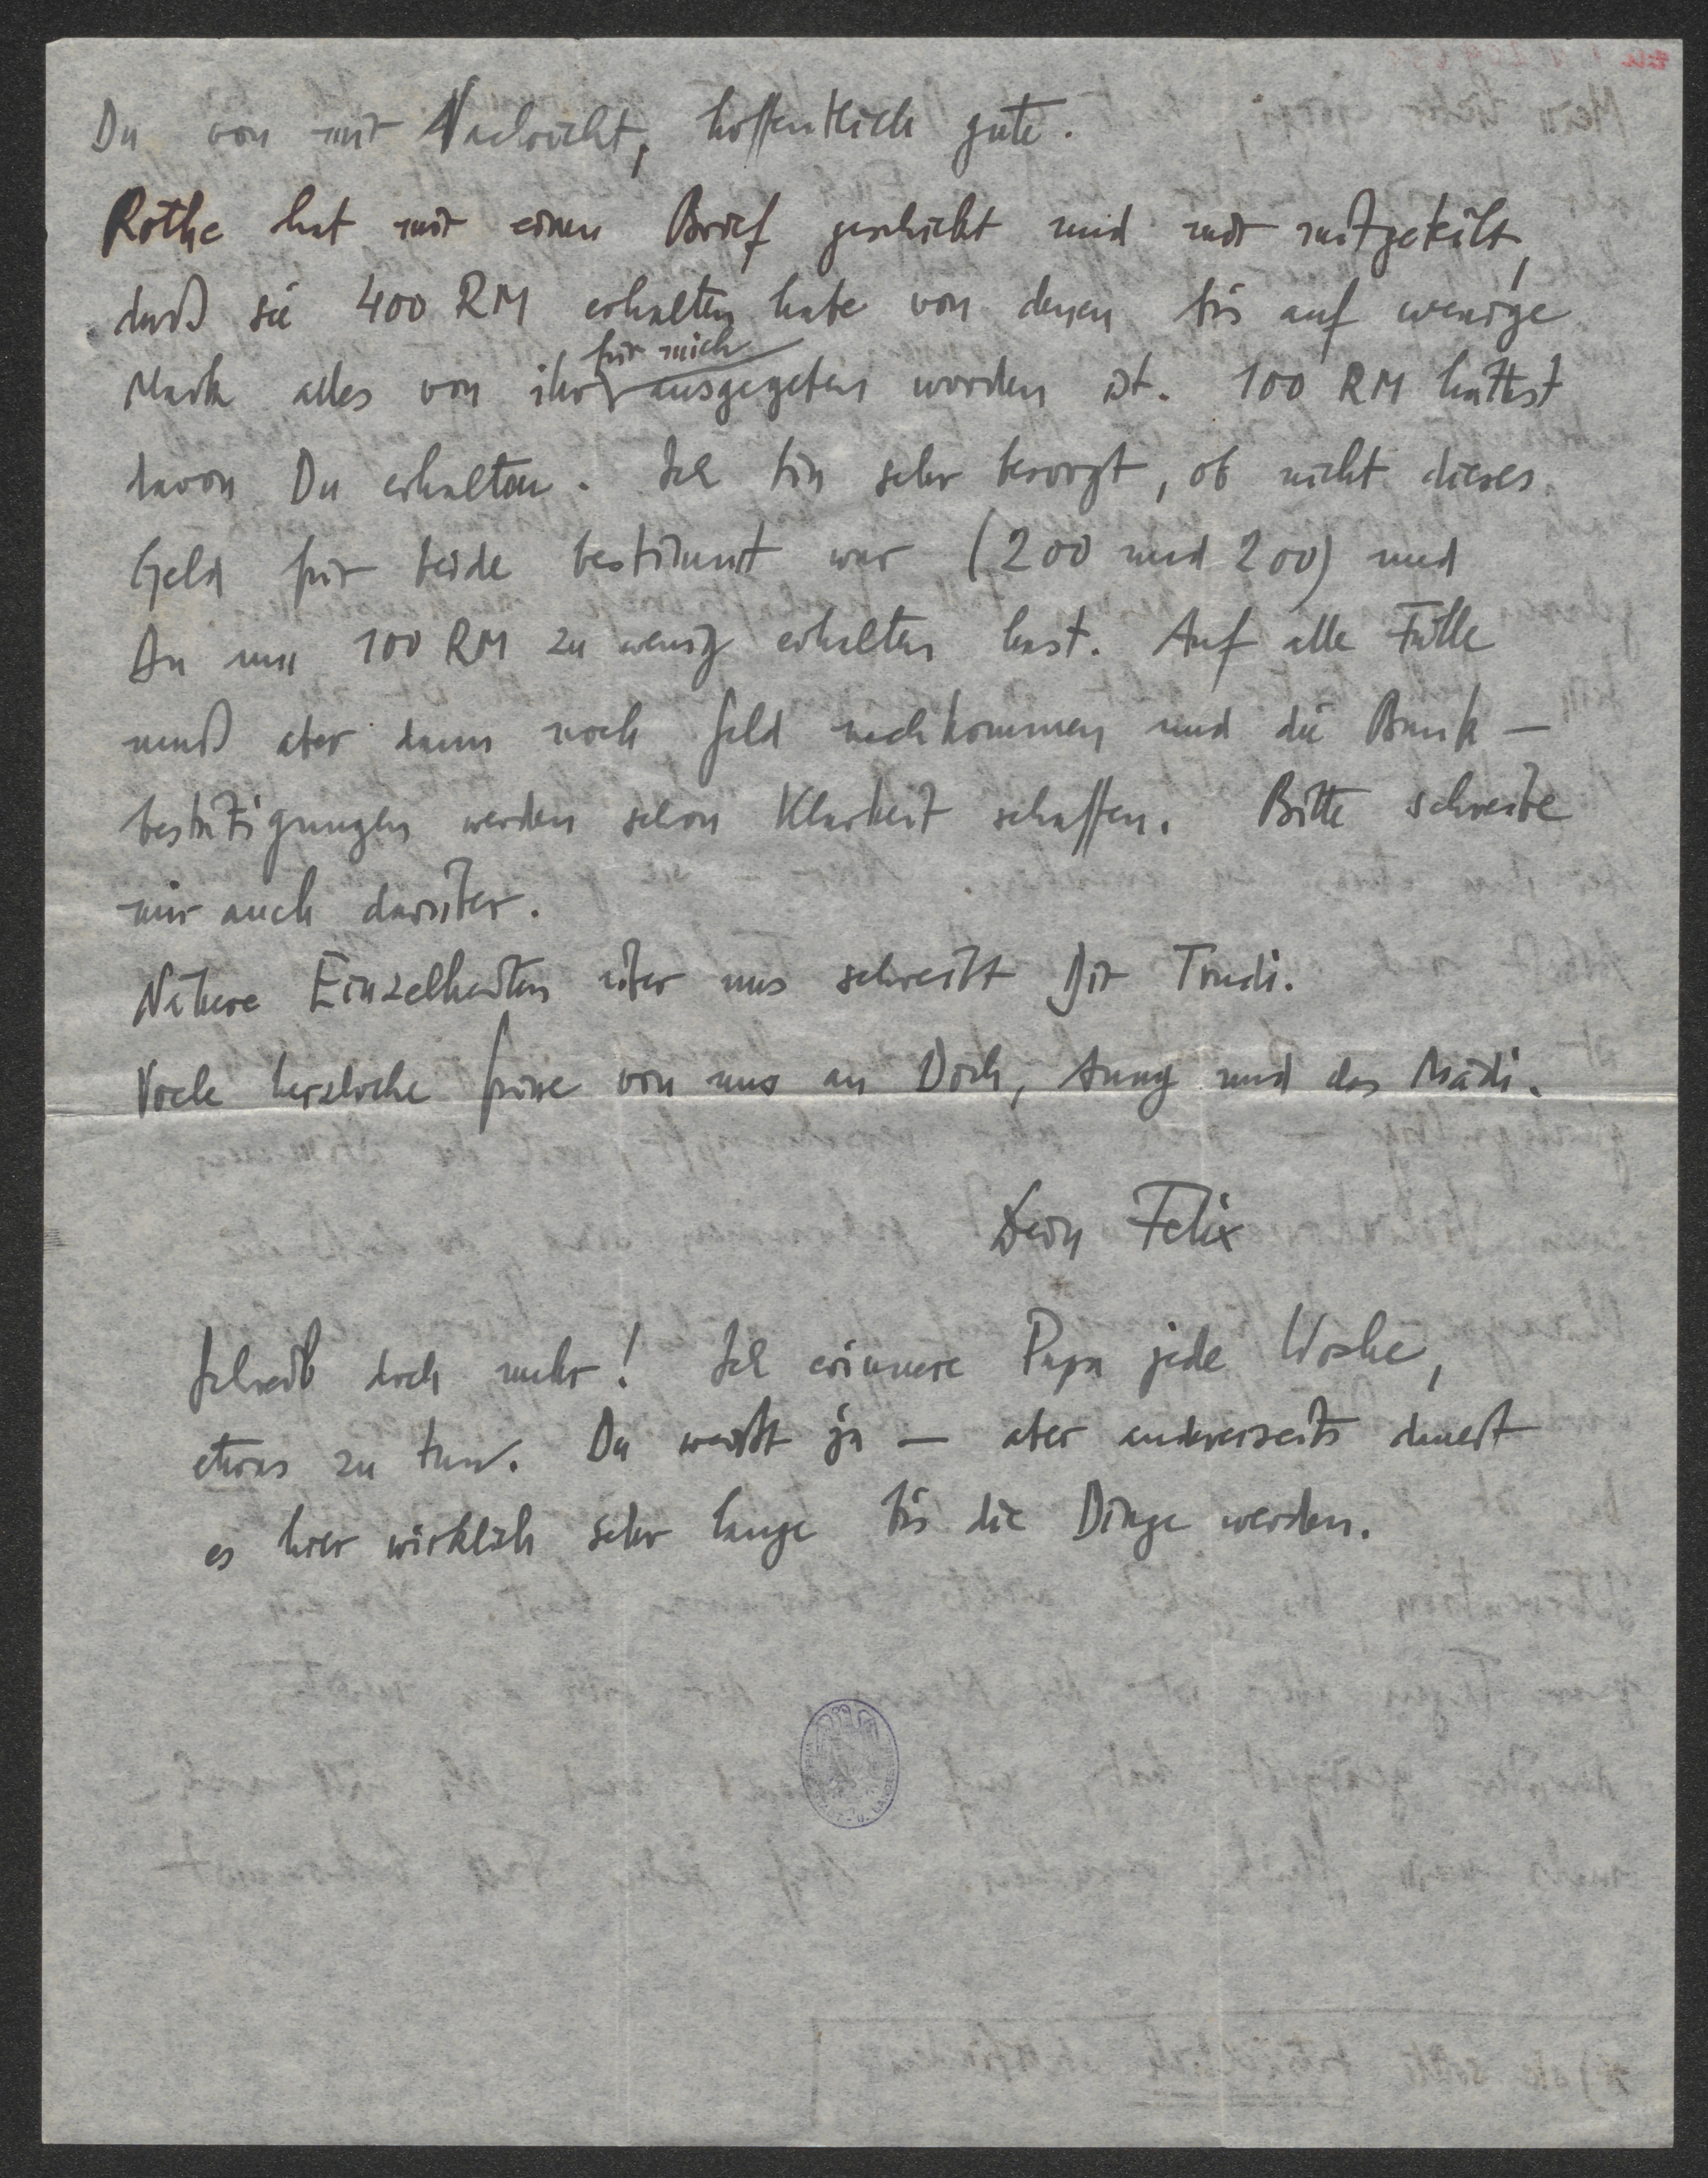 Du von mir Nachricht, hoffentlich gute.
Rothe hat mir einen Brief geschickt und mir mitgeteilt,
daß sie 400 RM erhalten habe von denen bis auf wenige
für mich
Mark alles von ihr ausgegeben worden ist. 100 RM hättest
davon Du erhalten. Ich bin sehr besorgt, ob nicht dieses
Geld für beide bestimmt war (200 und 200) und
Du nun 100 RM zu wenig erhalten hast. Auf alle Fälle
muß aber dann noch Geld nachkommen und die Bank-
bestätigungen werden schon Klarheit schaffen. Bitte schreibe
mir auch darüber.
Nähere Einzelheiten über uns schreibt Dir Trudi.
Viele herzliche Grüsse von uns an Dich, Anny und das Mädi.
Dein Felix
Schreib doch mehr! Ich erinnere Papa jede Woche,
etwas zu tun. Du weißt ja — aber andererseits dauert
es hier wirklich sehr lange bis die Dinge werden.